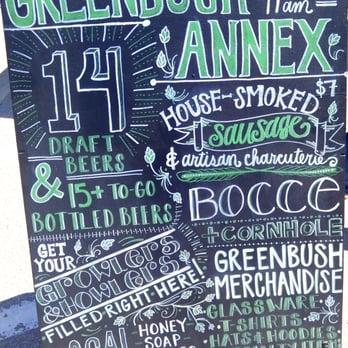 GREENBUSH 11am
ANNEX
14
DRAFT
BEERS
& 15+ TO-GO
BOTTLED BEERS
HOUSE-SMOKED $7
sausage
& artisan charcuterie
BOCCE
+ CORNHOLE
GET
YOUR
Growlers
& Howlers
FILLED RIGHT HERE!
HONEY
SOAP
GREENBUSH
MERCHANDISE
GLASSWARE
T-SHIRTS
HATS + HOODIES